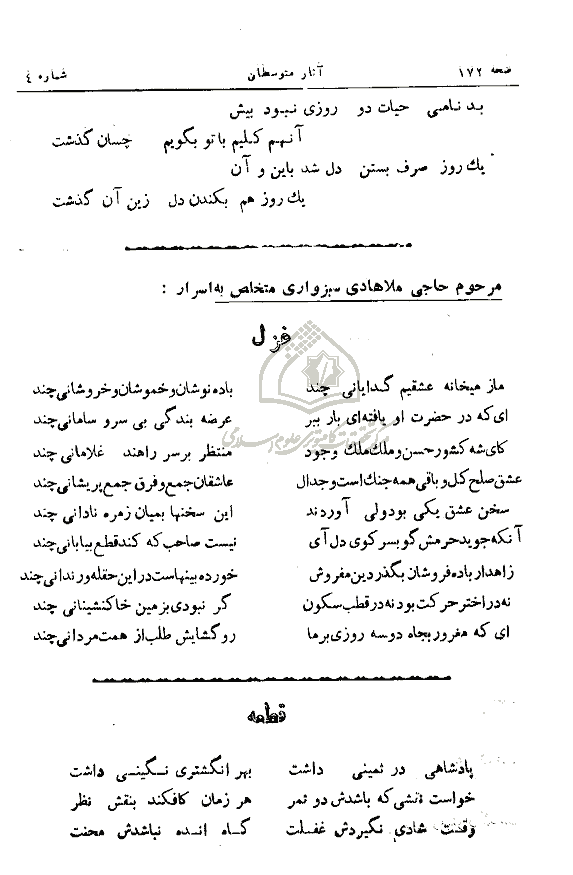 صفحه ۱۷۲ آثار متوسطان شماره ٤
بد نامی حیات دو روزی نبود بیش
آنهم کلیم با تو بگویم چسان گذشت
یك روز صرف بستن دل شد باین و آن
یك روز هم بکندن دل زین آن گذشت
مرحوم حاجی ملاهادی سبزواری متخلص به اسرار :
غزل
ماز میخانه عشقیم گدایانی چند باده نوشان و خموشان و خروشانی چند
ای که در حضرت او یافته‌ای بار ببر عرضه بندگی بی سرو سامانی چند
کای شه کشور حسن و ملك ملك وجود منتظر بر سر راهند غلامانی چند
عشق صلح کل و باقی همه جنك است و جدال عاشقان جمع و فرق جمع پریشانی چند
سخن عشق یکی بود ولی آوردند این سخنها بمیان زمره نادانی چند
آنکه جوید حرمش گو بسر کوی دل آی نیست صاحب که کند قطع بیابانی چند
زاهد از باده فروشان بگذر دین مفروش خورده بینهاست در این حقله ورندانی چند
نه در اختر حرکت بود نه در قطب سکون گر نبودی بزمین خاکنشینانی چند
ای که مغرور بجاه دوسه روزی بر ما رو گشایش طلب از همت مردانی چند
قطعه
پادشاهی در ثمینی داشت بهر انگشتری نگینی داشت
خواست نقشی که باشدش دو ثمر هر زمان کافکند بنقش نظر
وقت شادی نگیردش غفلت گاه انده نباشدش محنت